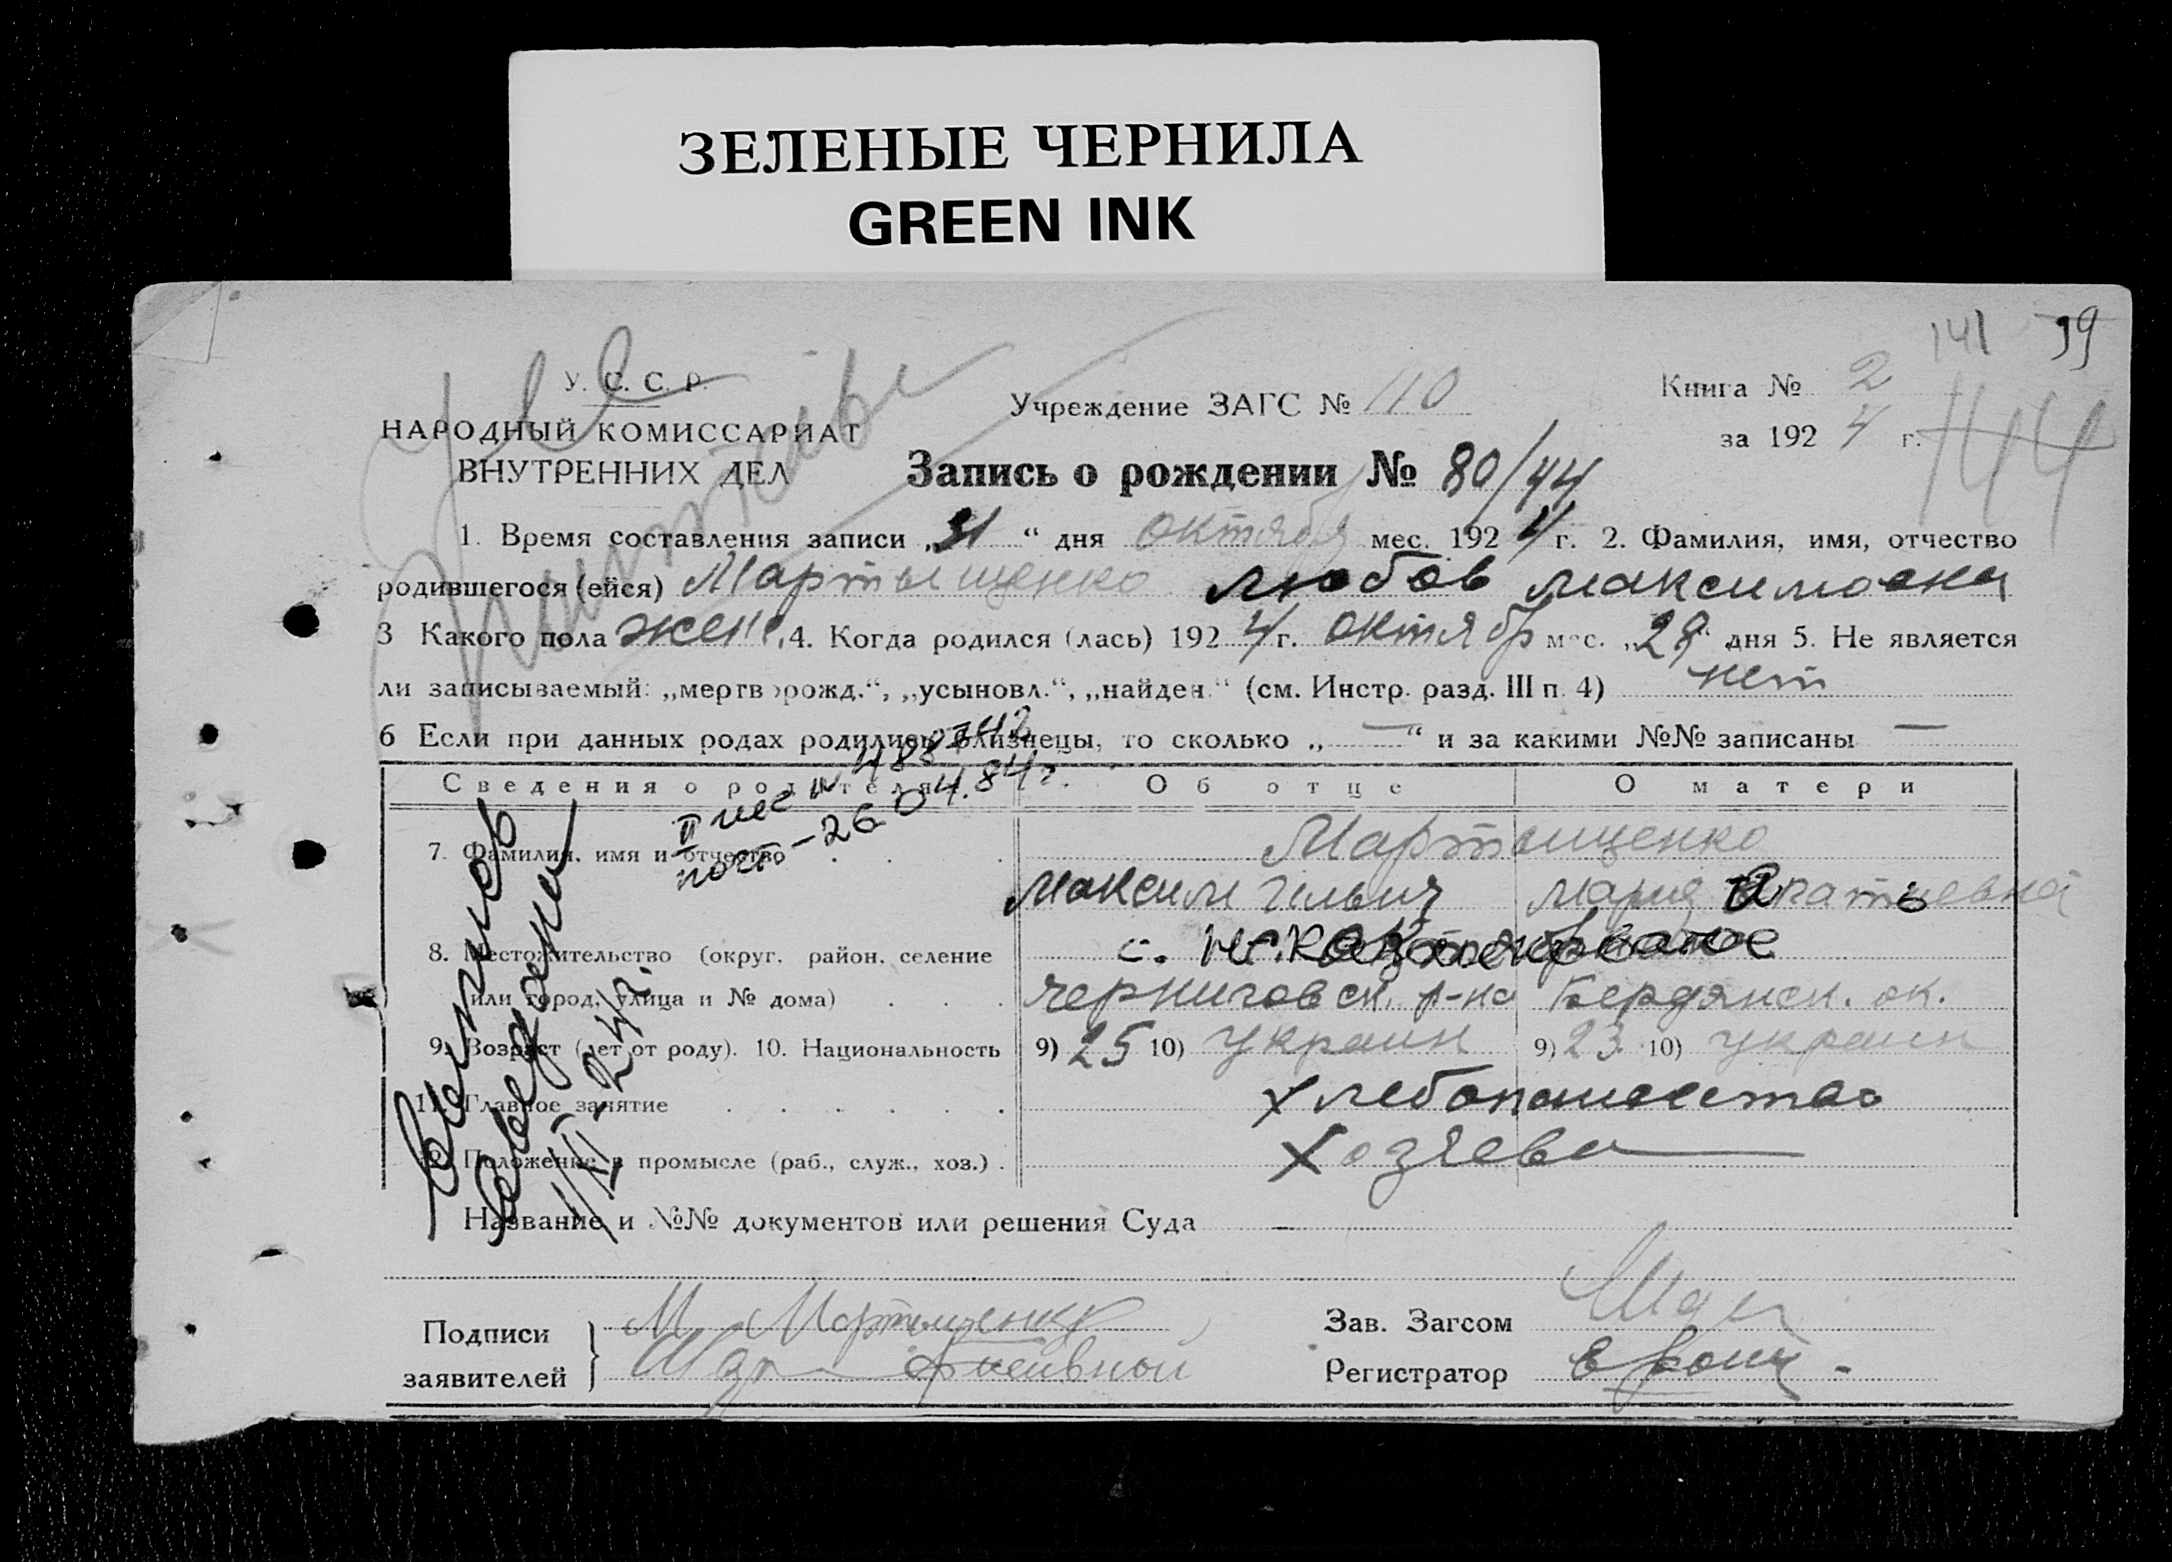 ЗЕЛЕНЫЕ ЧЕРНИЛА
GREEN INK
141 99
У. С. С. Р.
НАРОДНЫЙ КОМИССАРИАТ
ВНУТРЕННИХ ДЕЛ
Учреждение ЗАГС № 110
Книга № 2
за 192 4 г.
144
Запись о рождении № 80/44
1. Время составления записи „31“ дня октября мес. 192 4 г. 2. Фамилия, имя, отчество
родившегося (ейся) Мартыщенко Любов Максимовна
3 Какого пола жен. 4. Когда родился (лась) 192 4 г. октябр мес. „28“ дня 5. Не является
ли записываемый: „мертворожд.“, „усыновл.“, „найден.“ (см. Инстр. разд. III п. 4) нет
6 Если при данных родах родились близнецы, то сколько „ — “ и за какими №№ записаны —
Сведения о родителях Об отце О матери
7. Фамилия, имя и отчество Мартыщенко
Максим Ильич Мария
8. Местожительство (округ, район, селение с.
или город, улица и № дома) Черниговск. р-на Бердянск. ок.
9. Возраст (лет от роду). 10. Национальность 9) 25 10) украин 9) 23 10) украин
11. Главное занятие хлебопашество
12. Положение в промысле (раб., служ., хоз.) Хозяева
Название и №№ документов или решения Суда —
Подписи М Мартыщенко
заявителей
Зав. Загсом
Регистратор